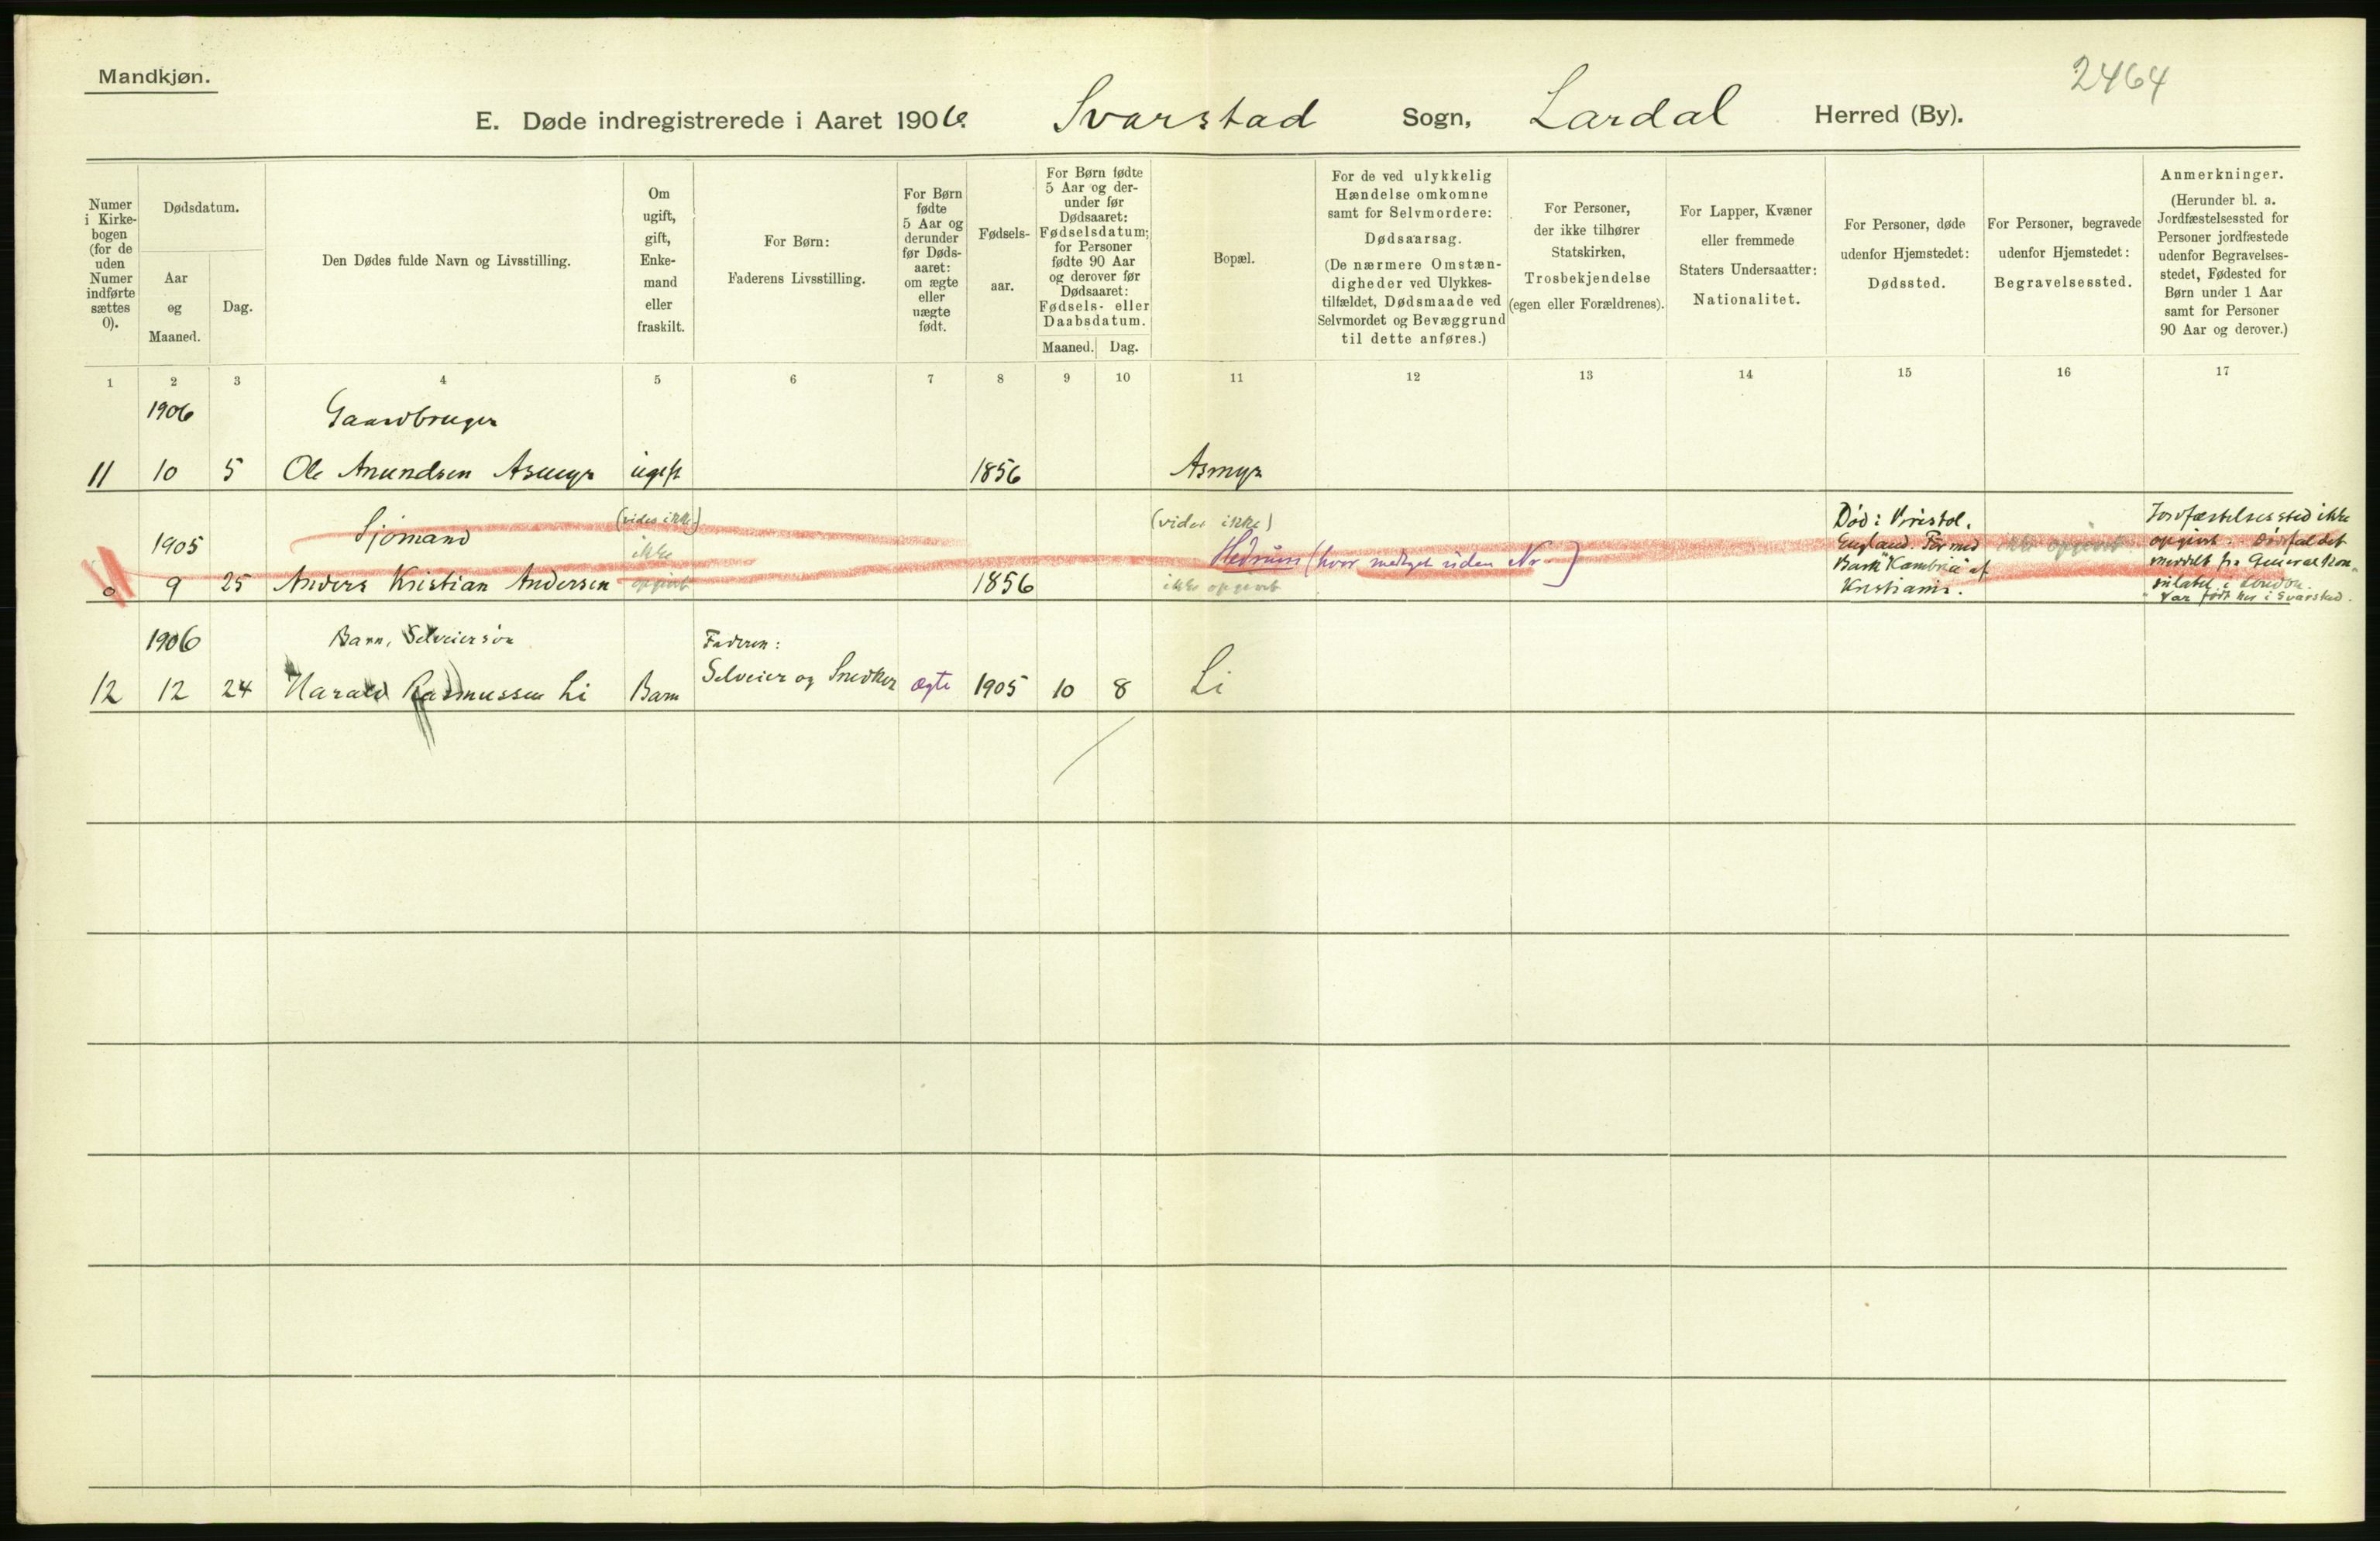 Mandkjøn.
2464
E. Døde indregistrerede i Aaret 1906. Svarstad Sogn, Lardal Herred (By).
Numer
i Kirke-
bogen
(for de
uden
Numer
indførte
sættes
0).
Dødsdatum.
Aar
og
Maaned.
Dag.
Den Dødes fulde Navn og Livsstilling.
Om
ugift,
gift,
Enke-
mand
eller
fraskilt.
For Børn:
Faderens Livsstilling.
For Børn
fødte
5 Aar og
derunder
før Døds-
aaret:
om ægte
eller
uægte
født.
Fødsels-
aar.
For Børn fødte
5 Aar og der-
under før
Dødsaaret:
Fødselsdatum;
for Personer
fødte 90 Aar
og derover før
Dødsaaret:
Fødsels- eller
Daabsdatum.
Maaned. Dag.
Bopæl.
For de ved ulykkelig
Hændelse omkomne
samt for Selvmordere:
Dødsaarsag.
(De nærmere Omstæn-
digheder ved Ulykkes-
tilfældet, Dødsmaade ved
Selvmordet og Bevæggrund
til dette anføres.)
For Personer,
der ikke tilhører
Statskirken,
Trosbekjendelse
(egen eller Forældrenes).
For Lapper, Kvæner
eller fremmede
Staters Undersaatter:
Nationalitet.
For Personer, døde
udenfor Hjemstedet:
Dødssted.
For Personer, begravede
udenfor Hjemstedet:
Begravelsessted.
Anmerkninger.
(Herunder bl. a.
Jordfæstelsessted for
Personer jordfæstede
udenfor Begravelses-
stedet, Fødested for
Børn under 1 Aar
samt for Personer
90 Aar og derover.)
1 2 3 4 5 6 7 8 9 10 11 12 13 14 15 16 17
1906 Gaardbruger
11 10 5 Ole Anundsen Asmyr ugift 1856 Asmyr
1905 Sjömand (vides ikke) (vides ikke)
ikke Hedrum (hvor medtaget uden Nr.)
0 9 25 Anders Kristian Andersen opgivet 1856 ikke opgivet
Död i Bristol.
England. For med
Bark "Kambria" af
Kristiania.
ikke opgivet
Jordfæstelsessted ikke
opgivet. Dödsfaldet
meddelt fra Generalkon-
sulatet i London.
Var født her i Svarstad.
1906 Barn, Selveiersøn Faderen:
12 12 24 Harald Rasmussen Li Barn Selveier og Snedker ægte 1905 10 8 Li